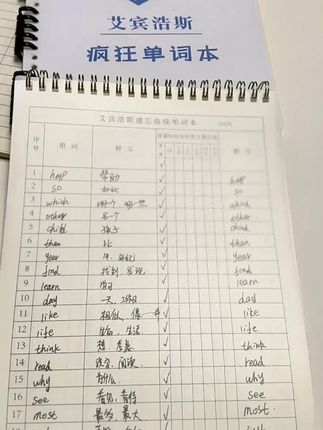 艾宾浩斯
疯狂单词本
艾宾浩斯遗忘曲线单词本
序号 单词 释义 默写
1 help 帮助 ✓ help
2 so 如此 ✓ so
3 which 哪个 哪一些 ✓ which
4 other 另一个 ✓ other
5 child 孩子 ✓ child
6 than 比 ✓ than
7 year 年、年纪 ✓ year
8 find 找到、发现 ✓ find
9 learn 学习 ✓ learn
10 day 一天、 ✓ day
11 like 相似、像 ✓ like
12 life 生命、生活 ✓ life
13 think 想、考虑 ✓ think
14 read 读书、阅读 ✓ read
15 why 为什么 ✓ why
16 see 看见、看待 ✓ see
17 most 最多、最大 ✓ most